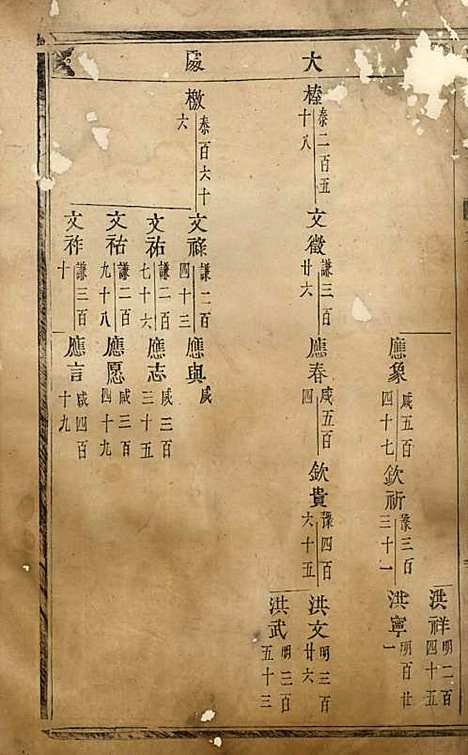 大
處
洪祥 明二百四十五
應象 咸五百四十七
欽祈 豫三百三十一
洪寧 明百廿一
榛 泰二百五十八
文徵 謙三百廿六
應春 咸五百四
欽貴 豫四百六十五
洪文 明三百廿六
洪武 明二百五十三
檄 泰百六十六
文祿 謙二百四十三
應與 咸
文祐 謙二百七十六
應志 咸三百三十五
文祜 謙二百九十八
應愿 咸三百四十九
文祚 謙三百十
應言 咸四百十九